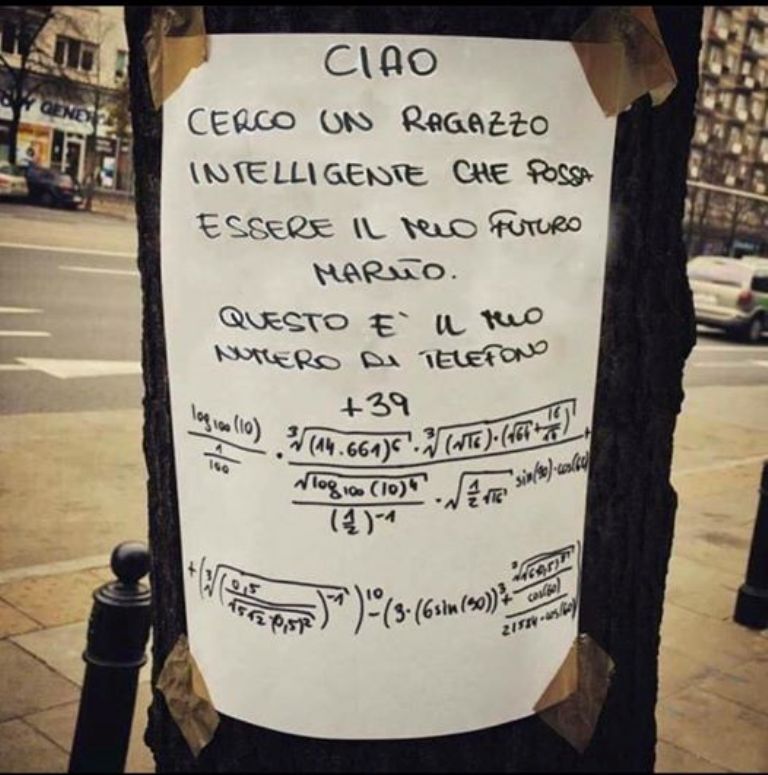 CIAO
CERCO UN RAGAZZO
INTELLIGENTE CHE POSSA
ESSERE IL MIO FUTURO
MARITO.
QUESTO E' IL MIO
NUMERO DI TELEFONO
+39
log₁₀₀(10) / (1/100) · ∛(14.661)⁶ · ∛(√16)·(√64+16/√16) / √log₁₀₀(10)⁴ / (1/2)⁻¹ · √1/2 √16 sin(90)·cos(60) +
+(∛(0,5 / )⁻¹)¹⁰ -(3·(6sin(90))³ + cos(60) / 21584·cos(60)